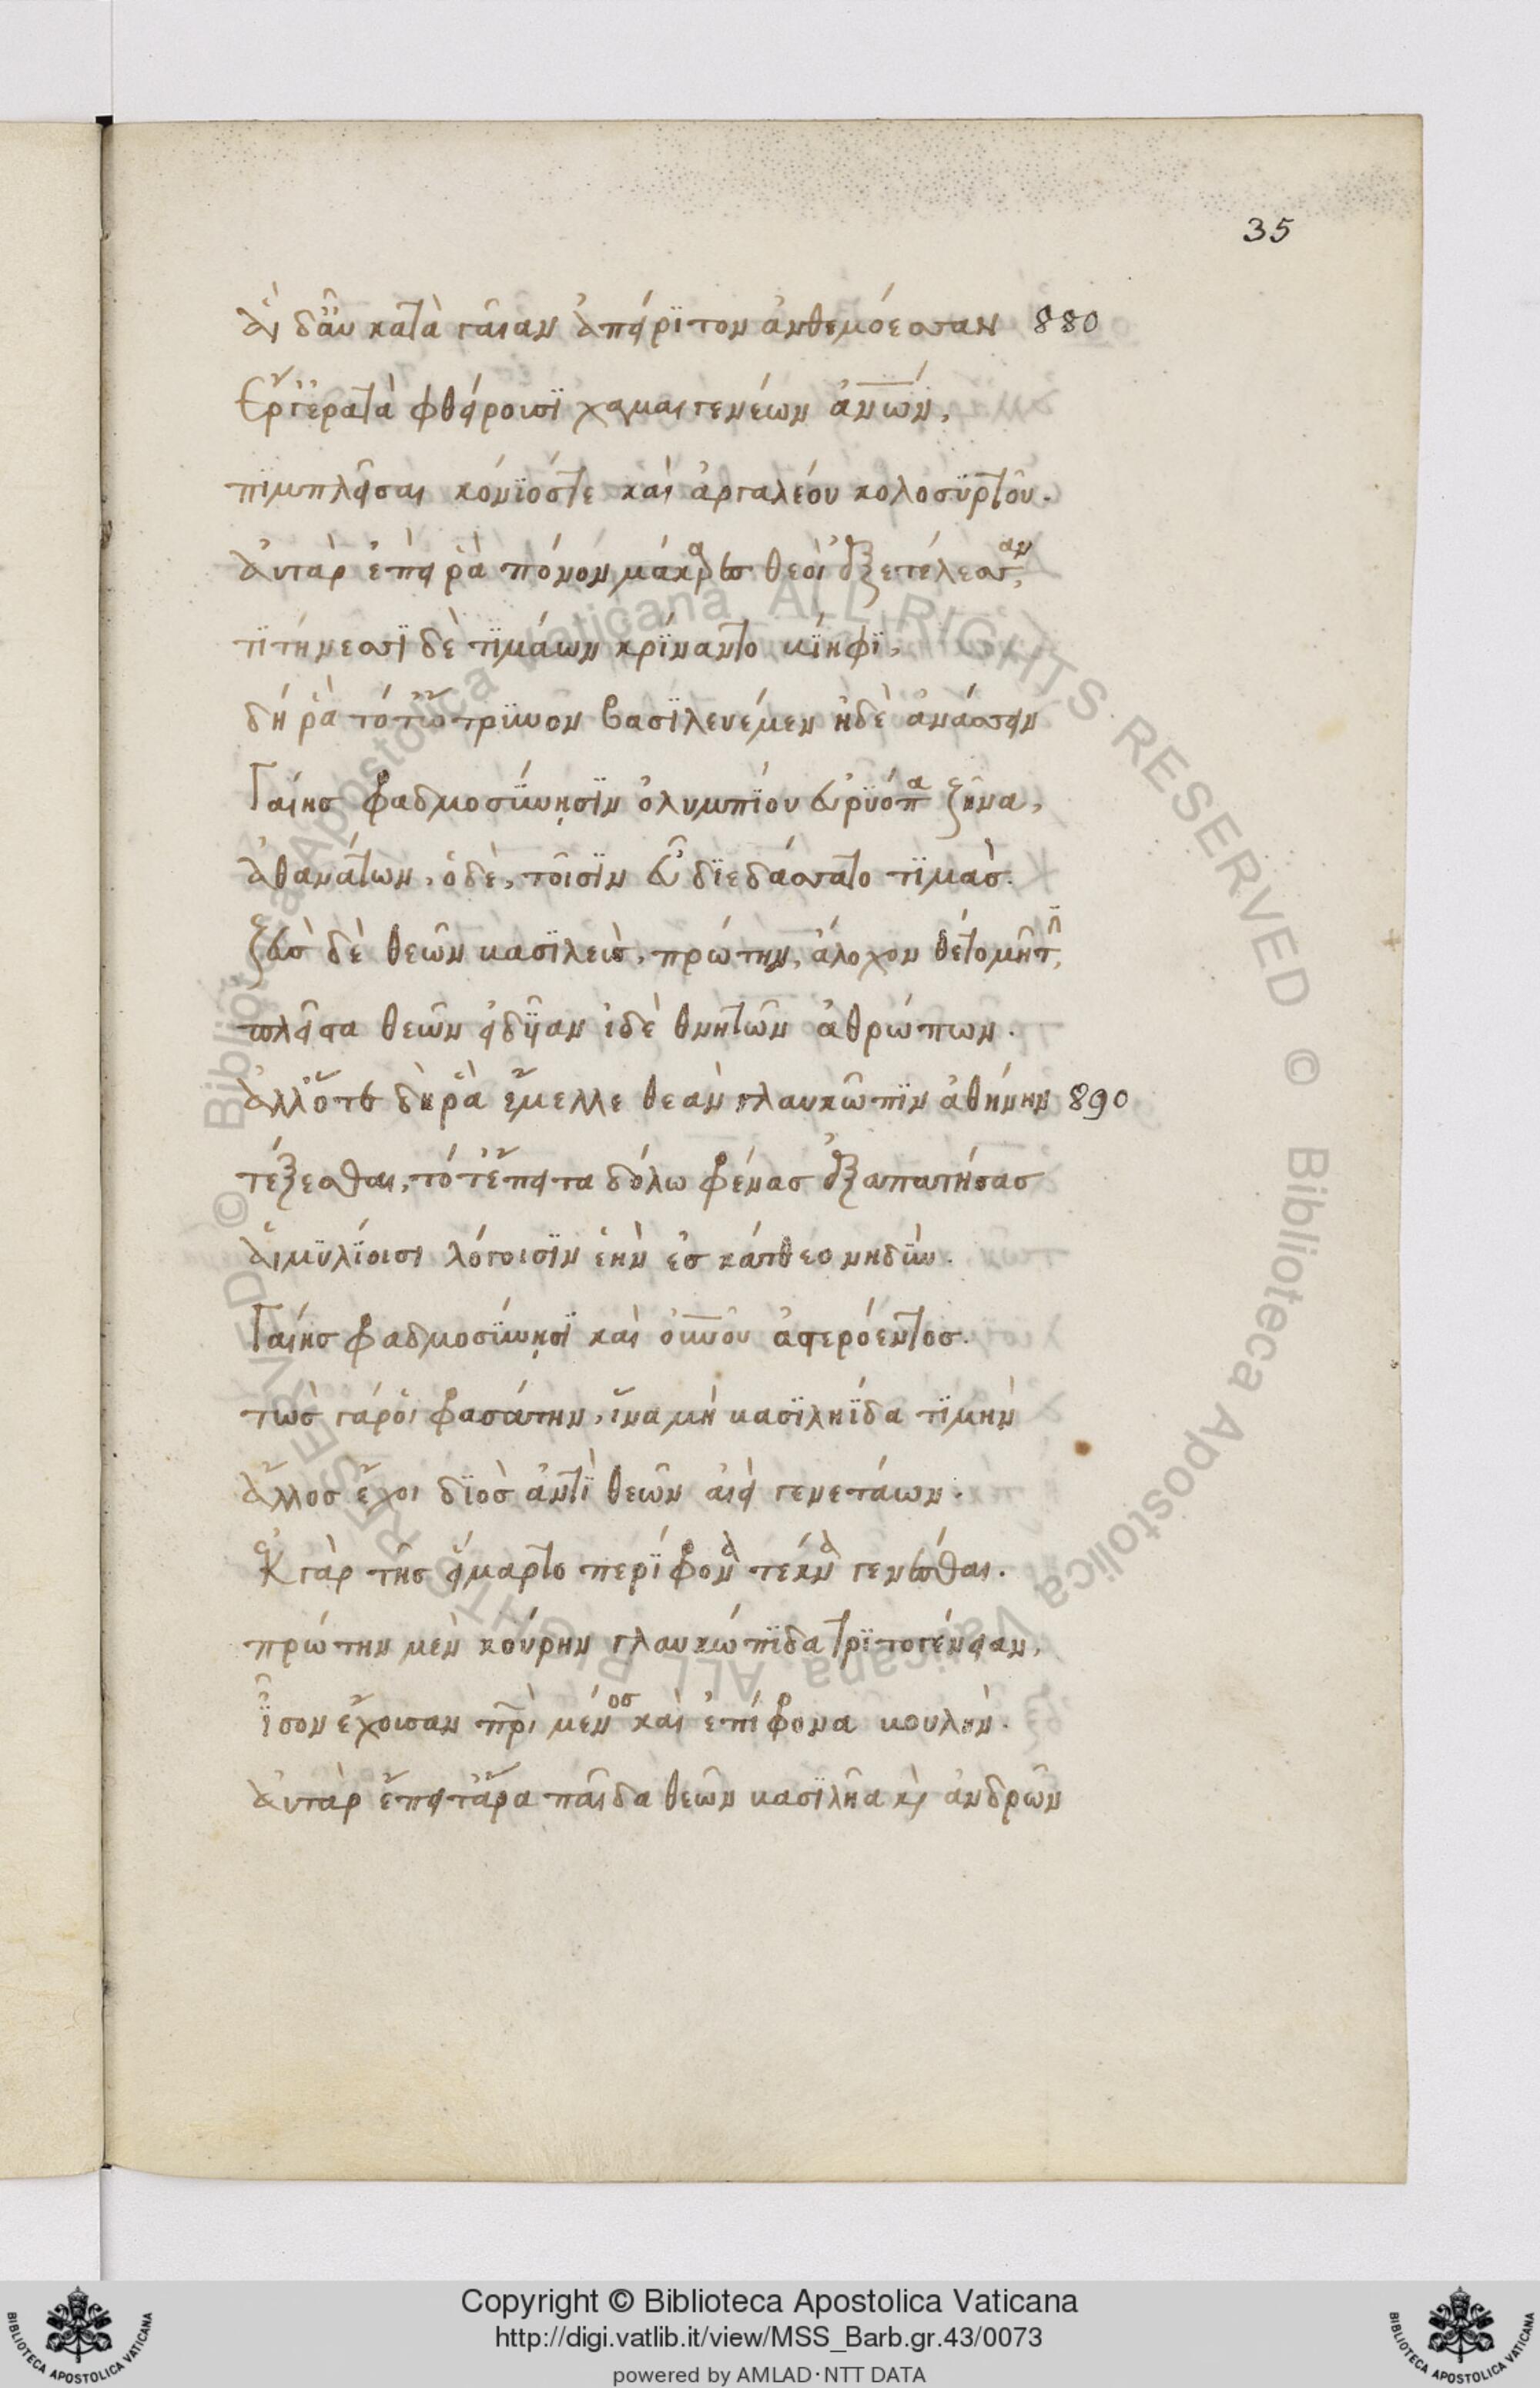 35
ἁι δἂυ κατὰ γᾶιαν ἀπείριτον ἀνθεμόεσσαν 880
Ἔργ' ἐρατὰ φθείρουσϊ χαμαιγενέων ἀν̅ων,
πϊμπλεῖσαι κόνϊόστε καὶ ἀργαλέου κολοσϋρτοῦ.
ἀυτὰρ ἐπεὶ ῥὰ πόνον μάκαρες θεοὶ ἐξετέλεσσαν,
τϊτήνεσσϊ δὲ τϊμάων κρίναντο βίηφϊ,
δή ῥὰ τότ' ὤτρϋνον βασϊλευέμεν ἠδὲ ἀνάσσειν
Γαίης φραδμοσύνῃσϊν ὀλυμπϊον εὐρϋόπα ζῆνα,
ἀθανάτων, ὁ δὲ, τοῖσϊν εὖ δϊεδάσσατο τϊμὰς.
ζεὺς δὲ θεῶν βασϊλεὺς, πρώτην, ἄλοχον θέτο μῆτϊν,
πλεῖσα θεῶν εἰδυῖαν ἰδὲ θνητῶν ἀθρώπων.
ἀλλ' ὅτε δὴ ῥὰ ἔμελλε θεὰν γλαυκῶπϊν ἀθήνην 890
τέξεσθαι, τότ' ἔπειτα δόλω φρένας ἐξαπατήσας
ἁιμϋλίοισι λόγοισϊν ἑὴν ἐς κάτθεο νηδϋν.
Γαίης φραδμοσύνῃσϊ καὶ οὐν̅οῦ ἀστερόεντος.
τὼς γάρ ὁι φρασάτην, ἵνα μὴ βασϊληΐδα τϊμὴν
ἄλλος ἔχοι δϊὸς ἀντϊ θεῶν ἀιεὶ γενετάων.
Ἐκ γὰρ τῆς εἵμαρτο περίφρονα τέκνα γενέσθαι.
πρώτην μὲν κούρην γλαυκώπϊδα τρϊτογένειαν,
ἶσον ἔχουσαν πρ̅ὶ μένος καὶ ἐπίφρονα βουλὴν.
ἀυτὰρ ἔπειτ' ἄρα παῖδα θεῶν βασϊλῆα κὶ ἀνδρῶν
Copyright © Biblioteca Apostolica Vaticana
http://digi.vatlib.it/view/MSS_Barb.gr.43/0073
powered by AMLAD·NTT DATA